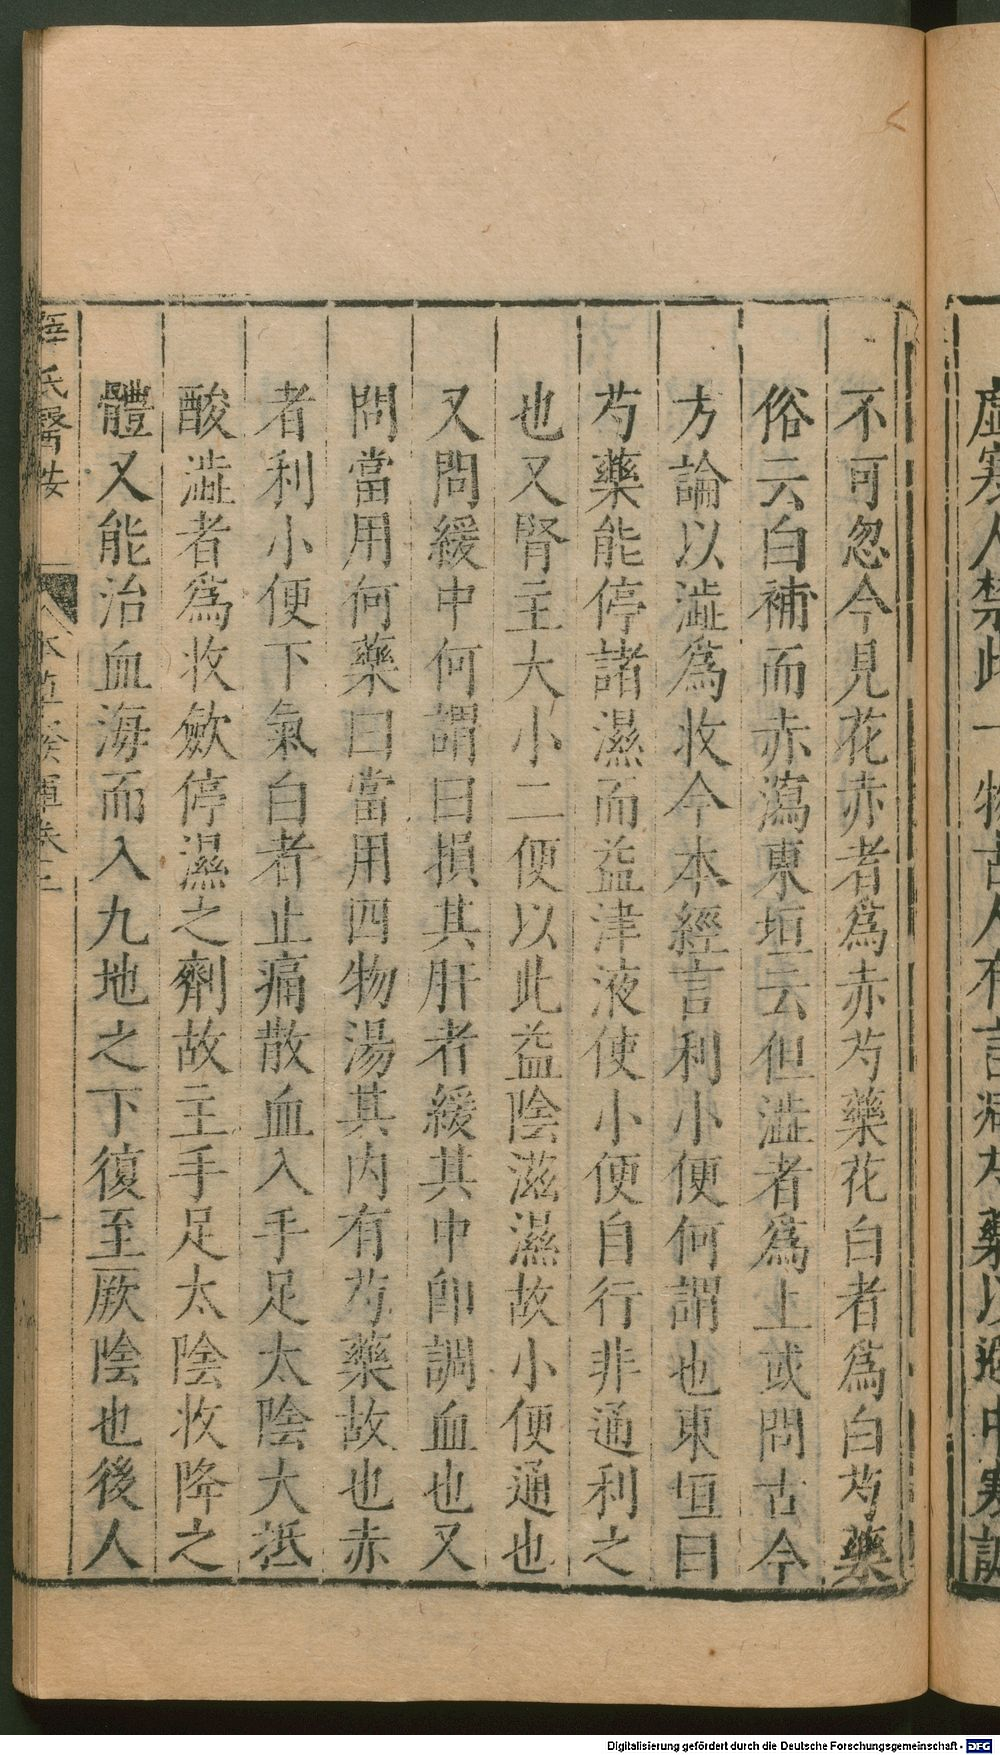 虛寒人禁此一物古人有言減芍藥以避中寒誠
不可忽今見花赤者爲赤芍藥花白者爲白芍藥
俗云白補而赤瀉東垣云但澁者爲上或問古今
方論以澁爲收今本經言利小便何謂也東垣曰
芍藥能停諸濕而益津液使小便自行非通利之
也又腎主大小二便以此益陰滋濕故小便通也
又問緩中何謂曰損其肝者緩其中卽調血也又
問當用何藥曰當用四物湯其内有芍藥故也赤
者利小便下氣白者止痛散血入手足太陰大抵
酸澁者爲收斂停濕之劑故主手足太陰收降之
體又能治血海而入九地之下復至厥陰也後人
氏醫按 本草發揮卷二 十
Digitalisierung gefördert durch die Deutsche Forschungsgemeinschaft - DFG